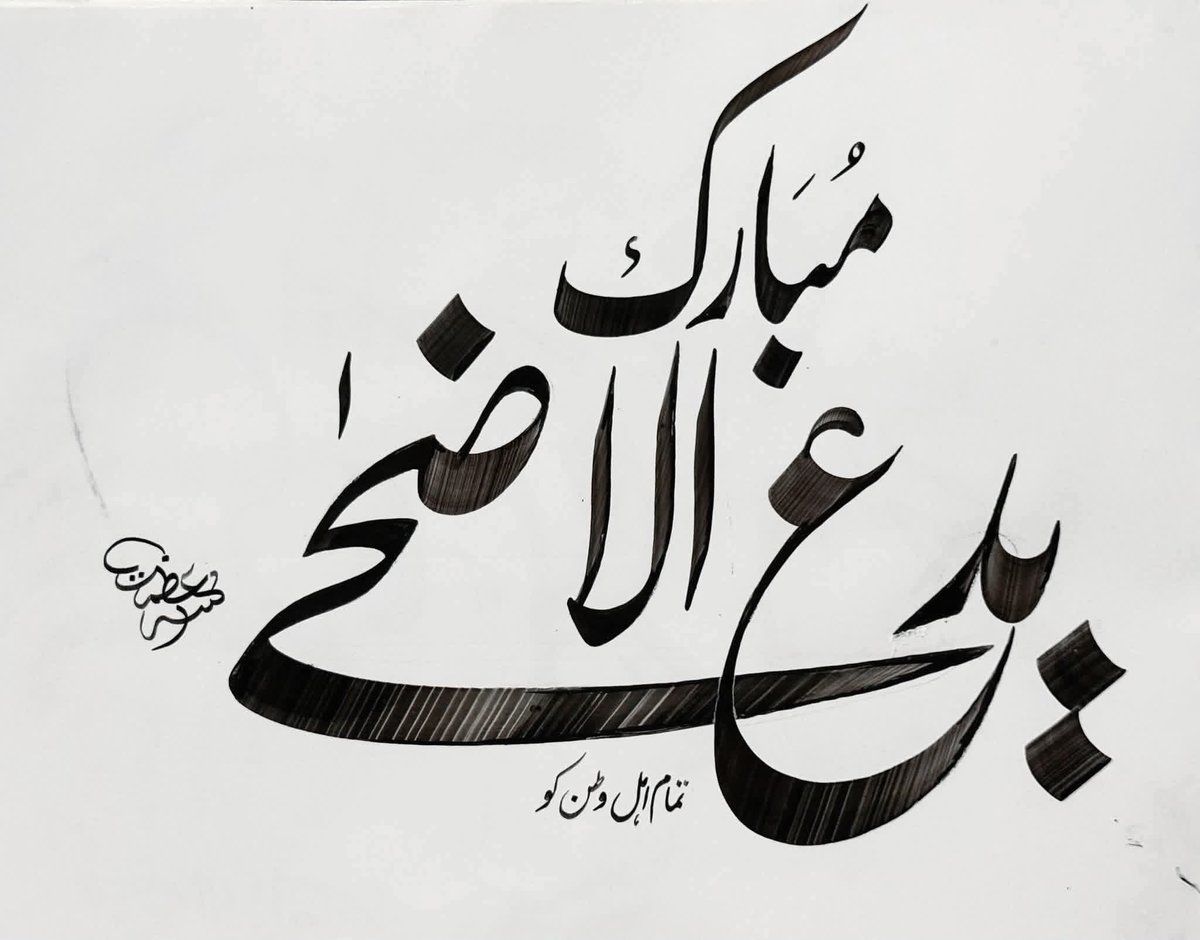 عید الاضحیٰ
مُبَارک
تمام اہل وطن کو